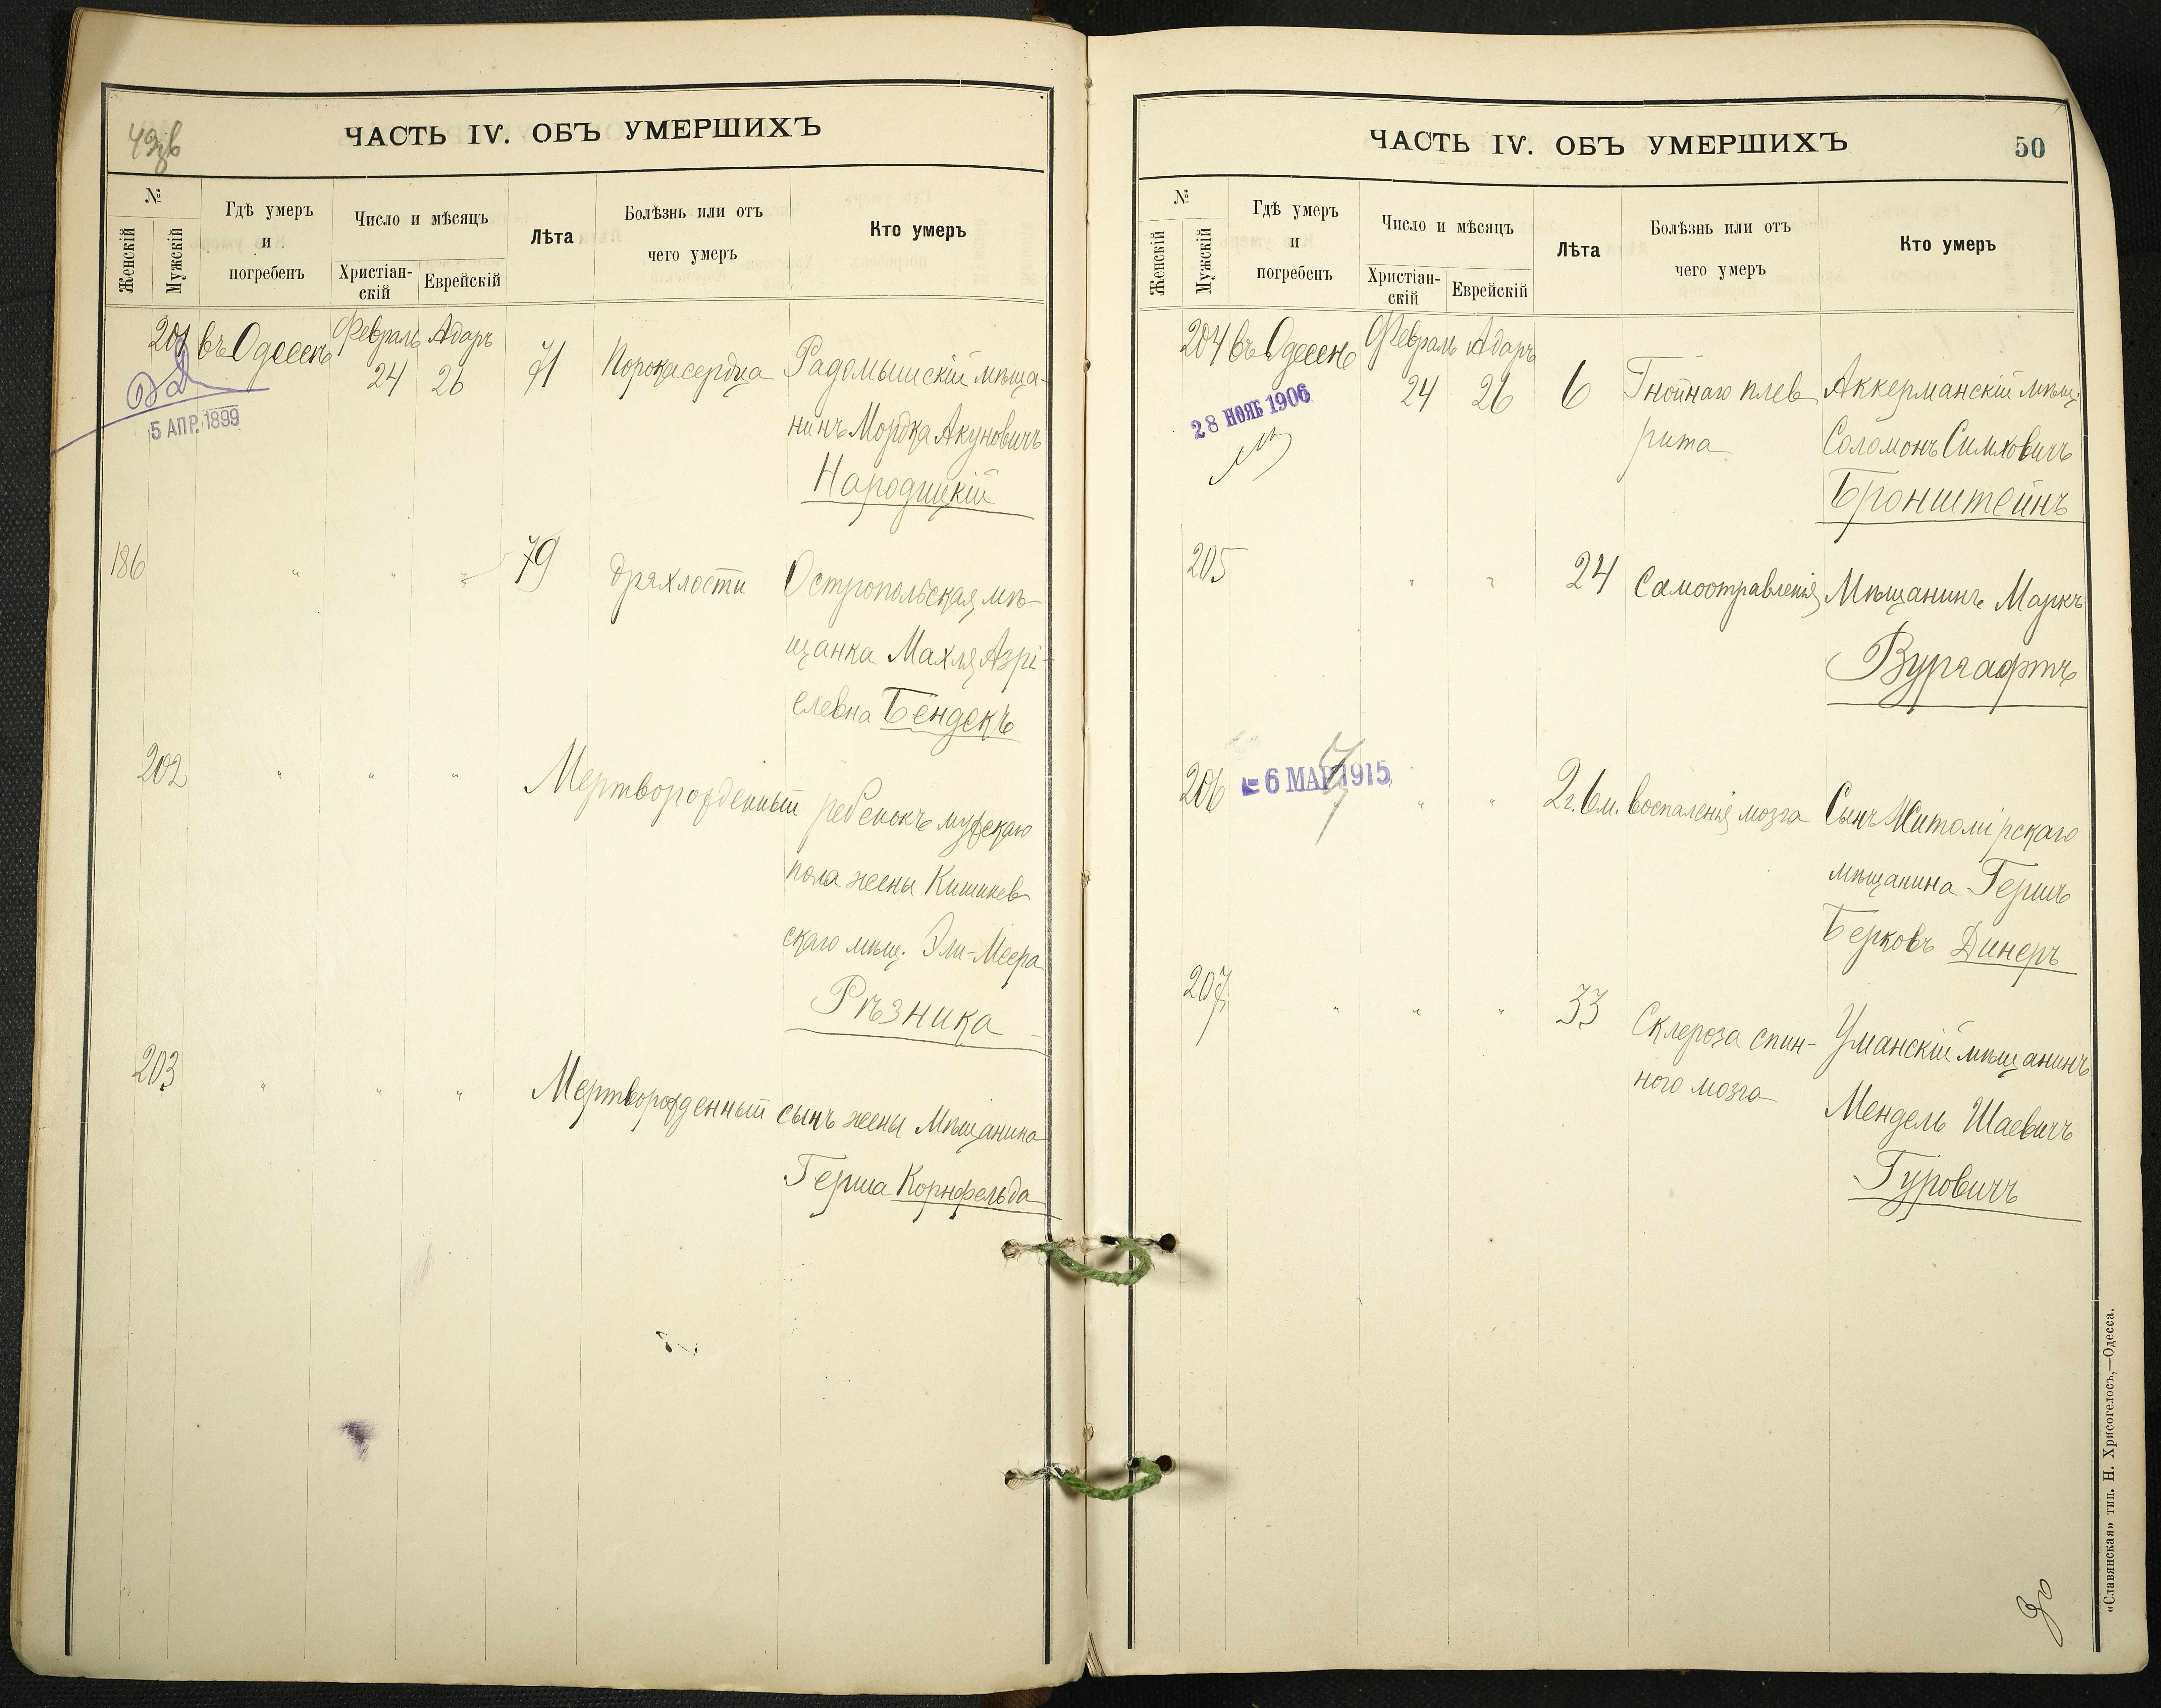 ЧАСТЬ IV. ОБЪ УМЕРШИХЪ
№
Женскій
Мужскій
Гдѣ умеръ
и
погребенъ
Число и мѣсяцъ
Христіан-
скій
Еврейскій
Лѣта
Болѣзнь или отъ
чего умеръ
Кто умеръ
201 въ Одессѣ Февраль Адаръ
24 26 71 Порока сердца Радомышскій мѣща-
5 АПР. 1899
нинъ Мордка Акуновичъ
Народицкій
186 " " " 79 дряхлости Остропольская мѣ-
щанка Махля Азрі-
елевна Бендекъ
202 " " " Мертворожденный ребенокъ мужскаго
пола жены Кишинев
скаго мѣщ. Эли-Меера
Рѣзника
203 " " " Мертворожденный сынъ жены Мѣщанина
Герша Корнфельда
ЧАСТЬ IV. ОБЪ УМЕРШИХЪ
50
№
Женскій
Мужскій
Гдѣ умеръ
и
погребенъ
Число и мѣсяцъ
Христіан-
скій
Еврейскій
Лѣта
Болѣзнь или отъ
чего умеръ
Кто умеръ
204 въ Одессѣ Февраль Адаръ
24 26 6 Гнойнаго плев Аккерманскій мѣщ.
28 НОЯБ 1906
рита Соломонъ Симховичъ
Бронштейнъ
205 " " 24 Самоотравленія Мѣщанинъ Маркъ
Вургафтъ
206 6 МАР 1915 " " 2г. 6м. воспаленія мозга Сынъ Житомірскаго
мѣщанина Гершъ
Берковъ Динеръ
207 " " " 33 Склероза спин- Уманскій мѣщанинъ
ного мозга Мендель Шаевичъ
Гуровичъ
«Славянская» тип. Н. Хрисогелосъ,—Одесса.